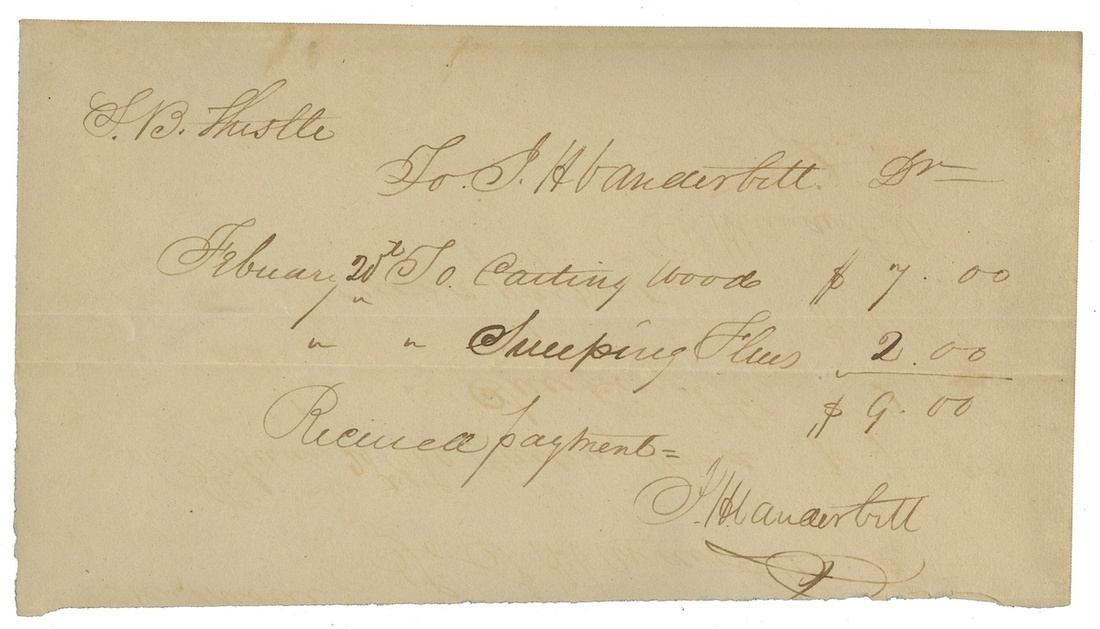 S. B. Thistle
To. J. H Vanderbilt. Dr
Febuary 20th To Carting Wood $ 7.00
" " Sweeping Flues 2.00
$ 9.00
Recieved payment=
J. H Vanderbilt